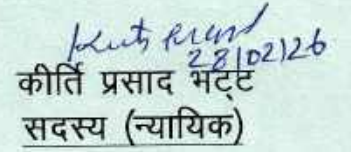 28/02/26
कीर्ति प्रसाद भट्ट
सदस्य (न्यायिक)